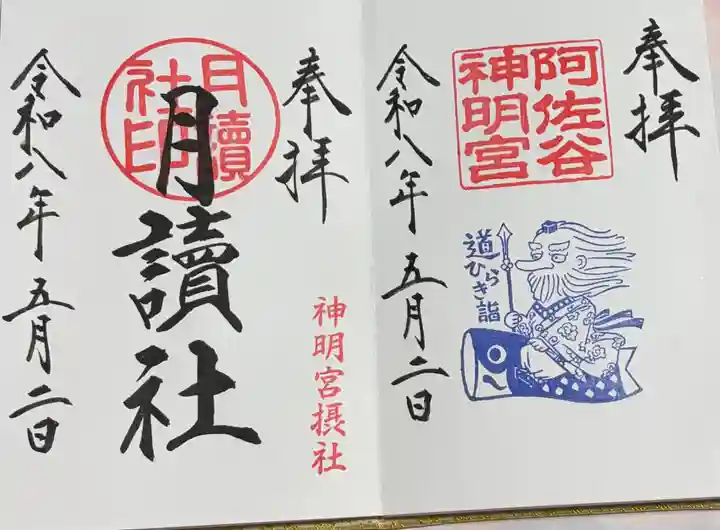 奉拝
阿佐谷
神明宮
道ひらき詣
令和八年五月二日
奉拝
神明宮摂社
月讀
社印
月讀社
令和八年五月二日